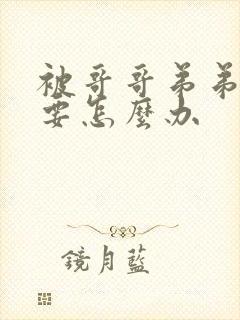 被哥哥弟弟
要怎麼办
鏡月藍